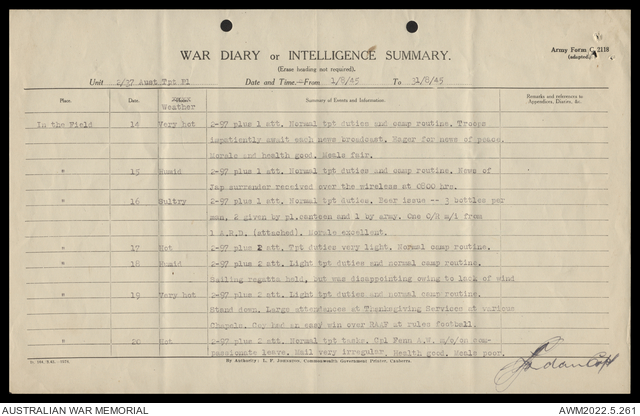 WAR DIARY or INTELLIGENCE SUMMARY.
(Erase heading not required).
Army Form C. 2118
(adapted).
Unit 2/37 Aust Tpt Pl Date and Time.—From 1/8/45 To 31/8/45
Place. Date. Weather Summary of Events and Information. Remarks and references to Appendices, Diaries, &c.
In the Field 14 Very hot 2-97 plus 1 att. Normal tpt duties and camp routine. Troops
impatiently await each news broadcast. Eager for news of peace.
Morale and health good. Meals fair.
" 15 Humid 2-97 plus 1 att. Normal tpt duties and camp routine. News of
Jap surrender received over the wireless at 0800 hrs.
" 16 Sultry 2-97 plus 1 att. Normal tpt duties. Beer issue -- 3 bottles per
man, 2 given by pl.canteen and 1 by army. One O/R m/i from
1 A.R.D. (attached). Morale excellent.
" 17 Hot 2-97 plus 2 att. Tpt duties very light. Normal camp routine.
" 18 Humid 2-97 plus 2 att. Light tpt duties and normal camp routine.
Sailing regatta held, but was disappointing owing to lack of wind
" 19 Very hot 2-97 plus 2 att. Light tpt duties and normal camp routine.
Stand down. Large attendances at Thanksgiving Services at various
Chapels. Coy had an easy win over RAAF at rules football.
" 20 2-97 plus 2 att. Normal tpt tasks. Cpl Fenn A.W. m/o/on com-
passionate leave. Mail very irregular. Health good. Meals poor.
By Authority: L. F. Johnston, Commonwealth Government Printer, Canberra.
Capt
AUSTRALIAN WAR MEMORIAL
AWM2022.5.261